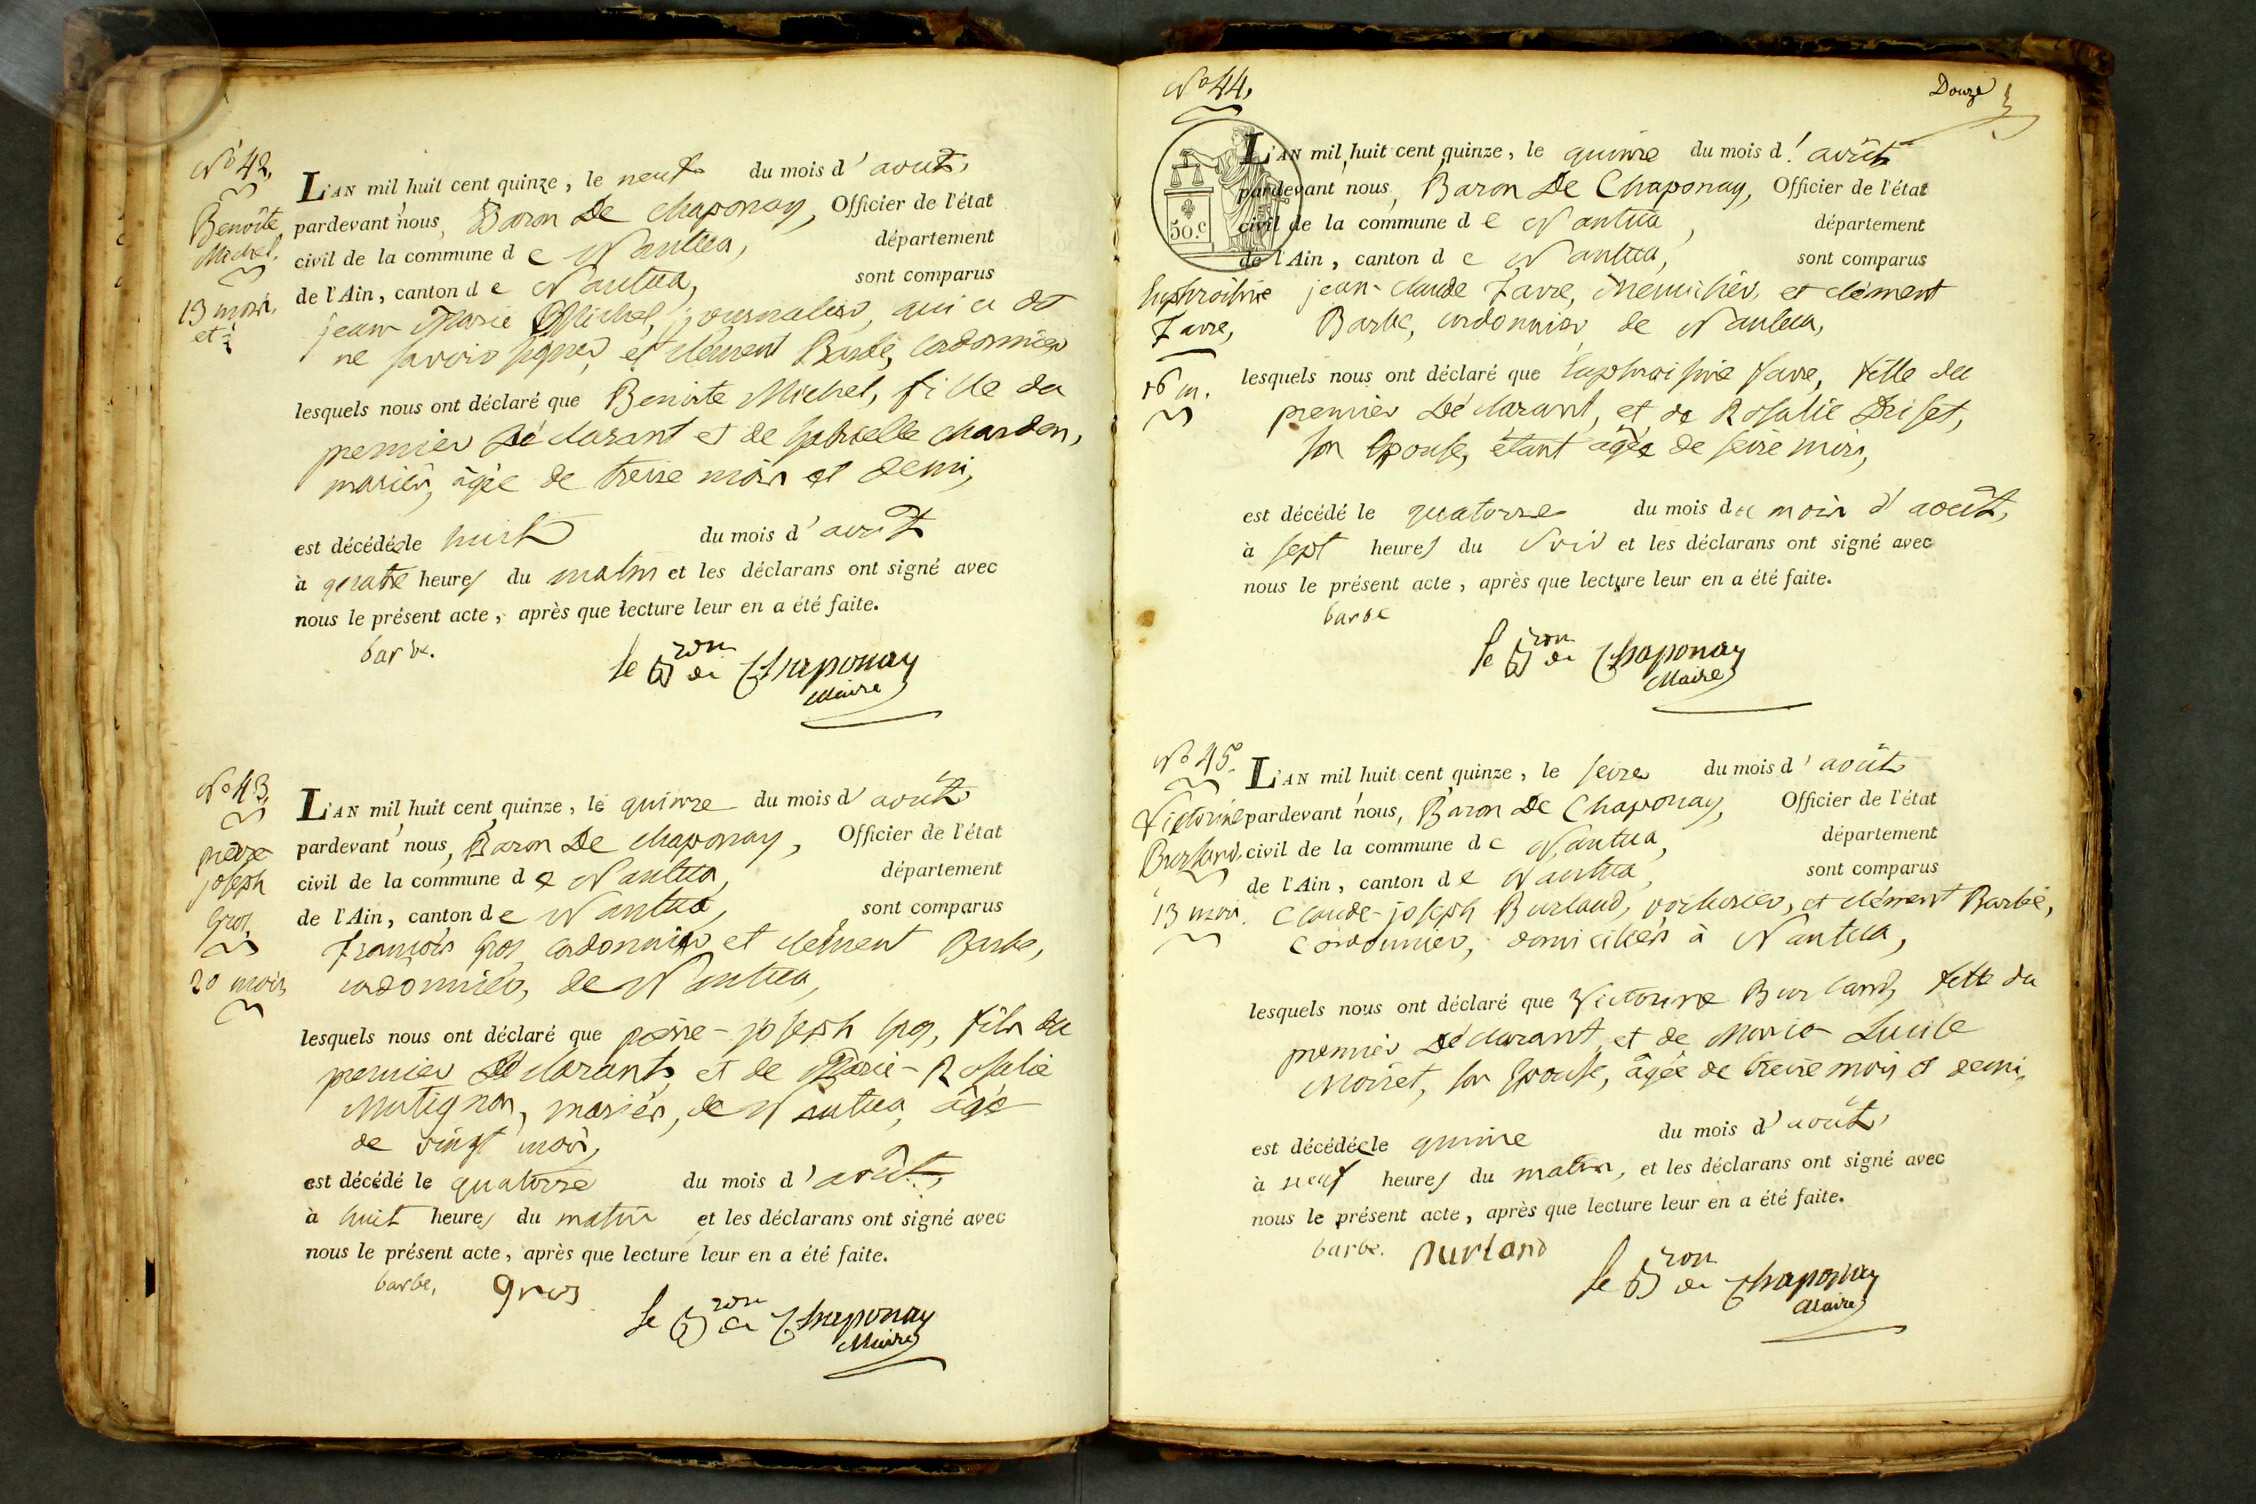 No 42,
Benoîte
Michel.
13 mois
et ½
L'AN mil huit cent quinze, le neuf du mois d'août,
pardevant nous, Baron De Chaponay, Officier de l'état
civil de la commune de Nantua, département
de l'Ain, canton de Nantua, sont comparus
jean Marie Michel, journalier, qui a dit
ne savoir signer, et clément Barbe, cordonnier
lesquels nous ont déclaré que Benoite Michel, fille du
premier Déclarant et de gabrielle chardon,
mariés, âgée de treize mois et demi,
est décédée le huit du mois d'août
à quatre heures du matin et les déclarans ont signé avec
nous le présent acte, après que lecture leur en a été faite.
barbe.
le Bron de Chaponay
Maire
No 43,
pierre
joseph
Gros,
20 mois
L'AN mil huit cent quinze, le quinze du mois d'août
pardevant nous, Baron De Chaponay, Officier de l'état
civil de la commune de Nantua, département
de l'Ain, canton de Nantua, sont comparus
françois Gros, cordonnier et clément Barbe,
cordonnier, de Nantua,
lesquels nous ont déclaré que pierre-joseph Gros, fils du
premier Déclarant, et de Marie-Rosalie
Mutignon, mariés, de Nantua, âgé
de vingt mois,
est décédé le quatorze du mois d'août,
à huit heures du matin et les déclarans ont signé avec
nous le présent acte, après que lecture leur en a été faite.
barbe, gros
le Bron de Chaponay
Maire
No 44,
Douze
50.c
Euphroisine
Favre,
16 m.
L'AN mil huit cent quinze, le quinze du mois d'août
pardevant nous, Baron De Chaponay, Officier de l'état
civil de la commune de Nantua, département
de l'Ain, canton de Nantua, sont comparus
jean-claude Favre, menuisier, et clément
Barbe, cordonnier, de Nantua,
lesquels nous ont déclaré que Euphroisine favre, fille du
premier Déclarant, et de Rosalie Driset,
son Epouse, étant âgée de seize mois,
est décédé le quatorze du mois du mois d'août,
à sept heures du soir et les déclarans ont signé avec
nous le présent acte, après que lecture leur en a été faite.
barbe
le Bron de Chaponay
Maire
No 45.
Victorine
Burland,
13 mois.
L'AN mil huit cent quinze, le seize du mois d'août
pardevant nous, Baron De Chaponay, Officier de l'état
civil de la commune de Nantua, département
de l'Ain, canton de Nantua, sont comparus
Claude-joseph Burland, et clément Barbe,
Cordonnier, domiciliés à Nantua,
lesquels nous ont déclaré que Victorine Burland, fille du
premier Déclarant, et de Marie Lucile
Moiret, son Epouse, âgée de treize mois et demi,
est décédée le quinze du mois d'août,
à neuf heures du matin, et les déclarans ont signé avec
nous le présent acte, après que lecture leur en a été faite.
barbe. burland
le Bron de Chaponay
Maire